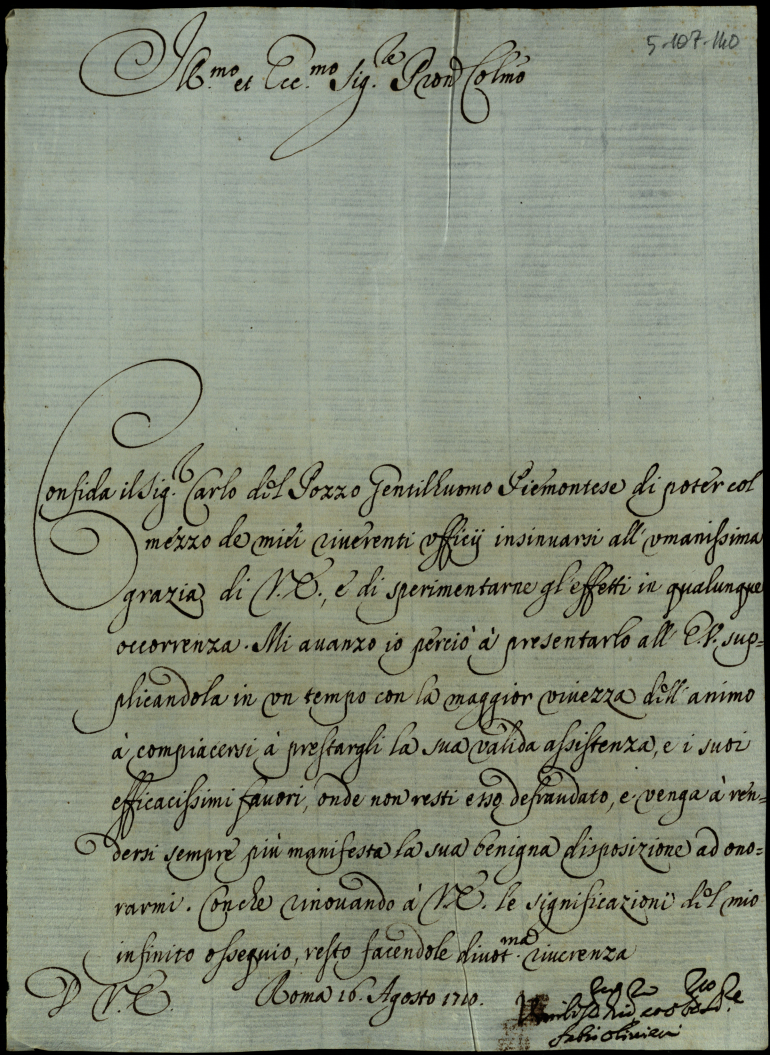 5-107-140
Ill.mo et Ecc.mo Sig.re Pron Colmo
Confida il Sig.r Carlo del Pozzo Gentilhuomo Piemontese di poter col
mezzo de miei riuerenti vfficij insinuarsi all' vmanissima
grazia di V.E., e di sperimentarne gl'effetti in qualunque
occorrenza. Mi auanzo io perciò à presentarlo all' E.V. sup=
plicandola in vn tempo con la maggior viuezza dell'animo
à compiacersi à prestargli la sua valida assistenza, e i suoi
efficacissimi fauori, onde non resti esso defraudato, e venga à ren=
dersi sempre più manifesta la sua benigna disposizione ad ono=
rarmi. Con che rinouando à V.E. le significazioni del mio
infinito ossequio, resto facendole diuot.ma riuerenza
D V.E. Roma 16. Agosto 1710.